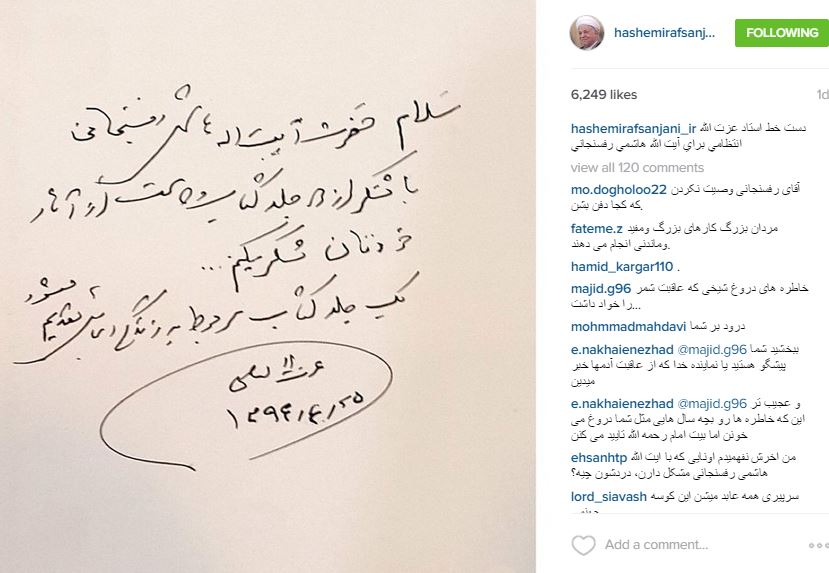 سلام حضرت آیت اله هاشمی رفسنجانی
با تشکر از جلد کتاب و از آثار
خودتان تشکر میکنم...
یک جلد کتاب مربوط به زندگی تقدیم میشود
عزت اله انتظامی
۱۳۹۴/۴/۲۵
hashemirafsanj...
FOLLOWING
6,249 likes
1d
hashemirafsanjani_ir دست خط استاد عزت الله
انتظامي براي آيت الله هاشمي رفسنجاني
view all 120 comments
mo.dogholoo22 آقای رفسنجانی وصیت نکردن
که کجا دفن بشن.
fateme.z مردان بزرگ کارهای بزرگ ومفید
وماندنی انجام می دهند.
hamid_kargar110 .
majid.g96 خاطره های دروغ شیخی که عاقبت شمر
را خواد داشت...
mohmmadmahdavi درود بر شما
e.nakhaienezhad @majid.g96 ببخشید شما
پیشگو هستید یا نماینده خدا که از عاقبت آدمها خبر
میدین
e.nakhaienezhad @majid.g96 و عجیب تر
این که خاطره ها رو بچه سال هایی مثل شما دروغ می
خونن اما بیت امام رحمه الله تایید می کنن
ehsanhtp من اخرش نفهمیدم اونایی که با ایت الله
هاشمی رفسنجانی مشکل دارن، دردشون چیه؟
lord_siavash سرپیری همه عابد میشن این کوسه
Add a comment...